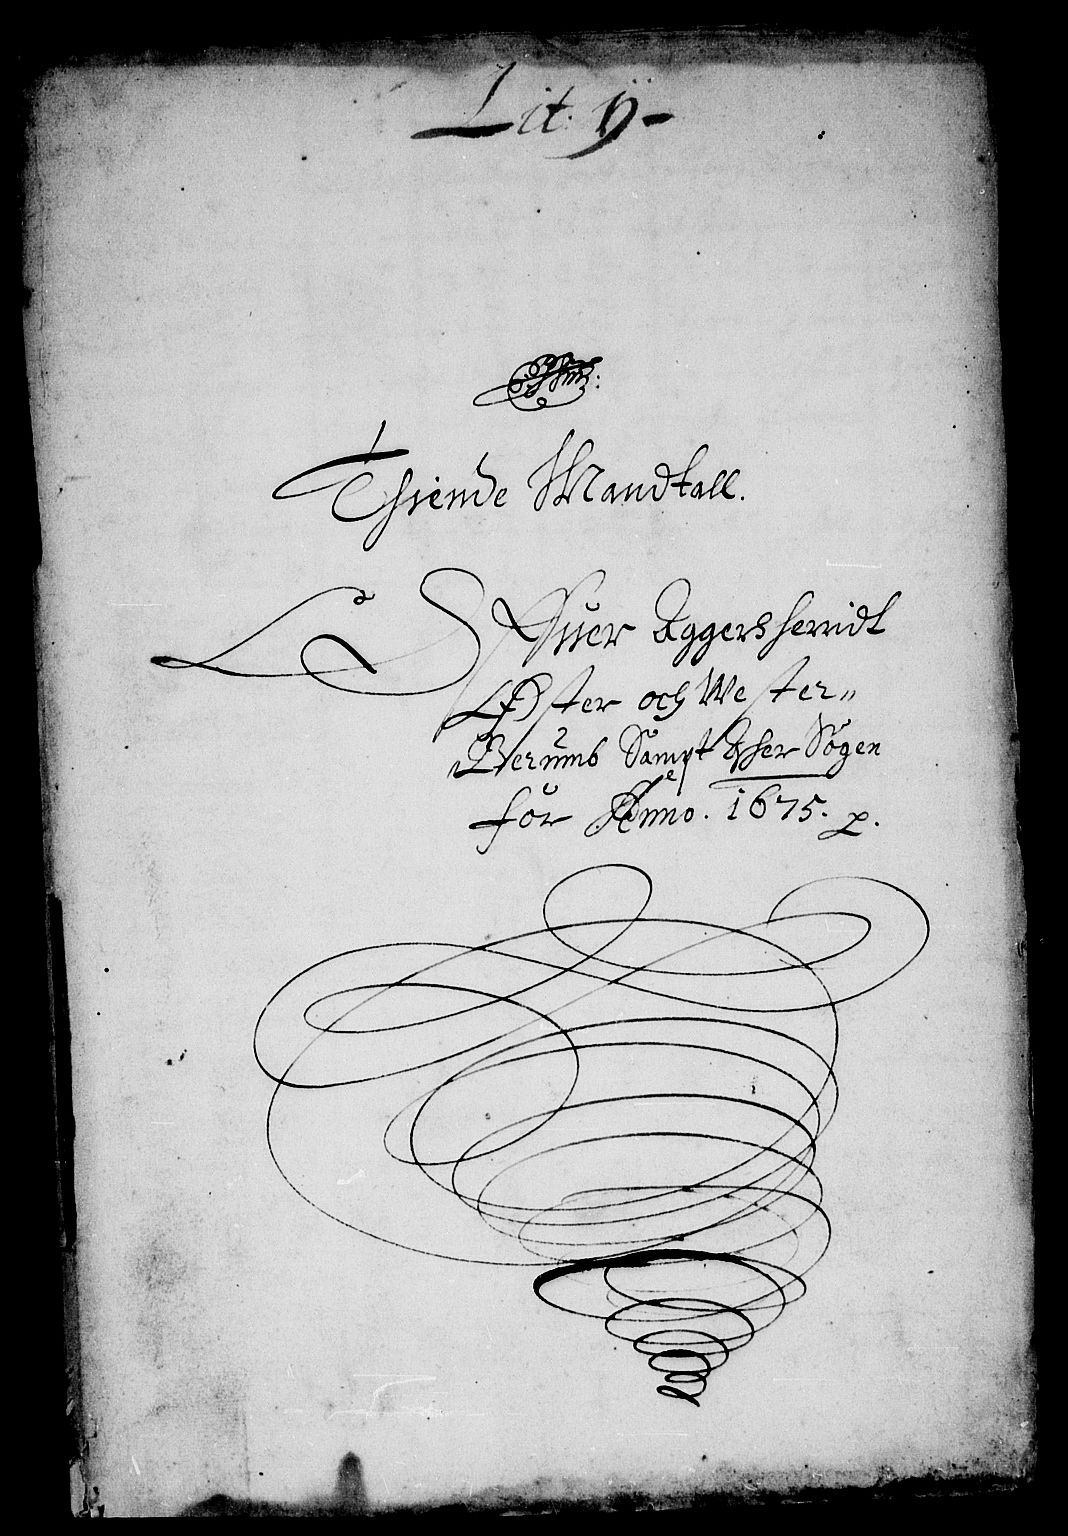 Lit. ÿ-
Thiende Mandtall.
Offuer Aggersherridt
Øster och Wester„
Berumb Sampt Asker Sogen
for Anno. 1675. p.